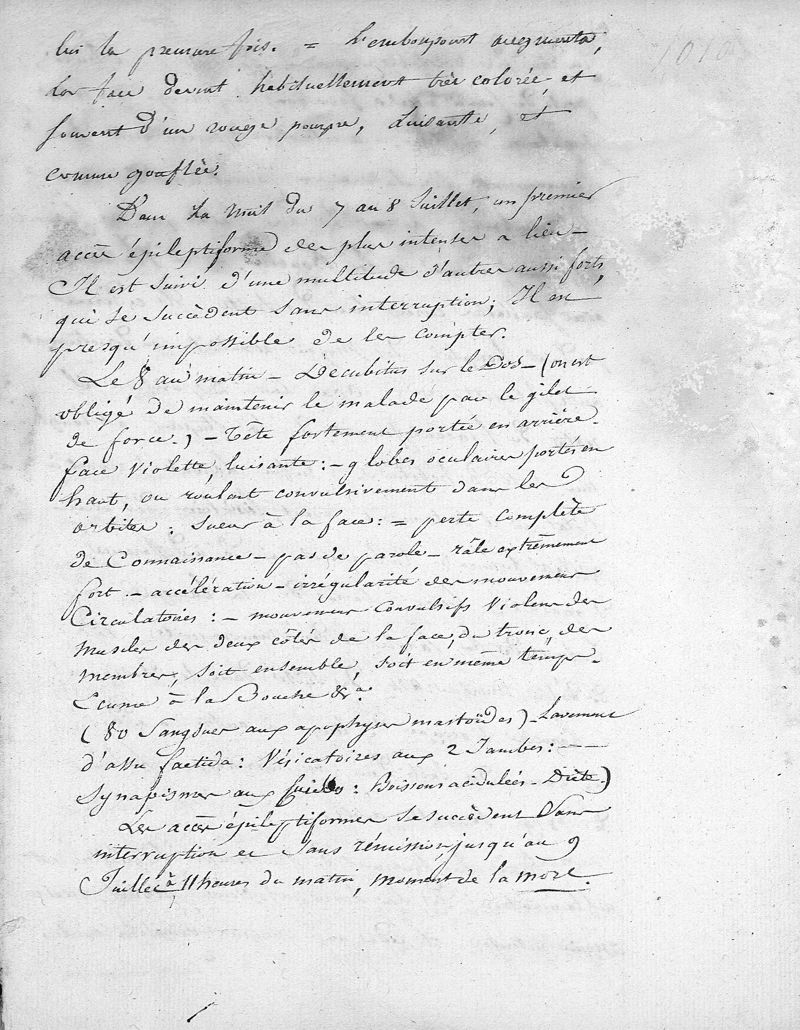 lui la premiere fois. = L'embonpoint augmenta,
La face devint habituellement très colorée, et
souvent d'un rouge pourpre, Luisante, et
comme gonflée.
Dans la nuit du 7 au 8 Juillet, un premier
accès épileptiforme des plus intenses a lieu –
Il est suivi d'une multitude d'autres aussi forts,
qui se succèdent sans interruption; Il est
presqu'impossible de les compter.
Le 8 au matin – Decubitus sur le Dos – (on est
obligé de maintenir le malade par le gilet
de force.) – Tête fortement portée en arrière.
face violette, luisante: – globes oculaires portés en
haut, ou roulant convulsivement dans les
orbites: Sueur à la face: = perte complète
de Connaissance – pas de parole – râle extrêmement
fort. – accélération – irrégularité des mouvemens
Circulatoires: – mouvemens Convulsifs Violens des
muscles des deux côtés de la face, du tronc, des
membres, soit ensemble, soit en même temps.
Ecume à la Bouche &a
(80 Sangsues aux apophyses mastoïdes) – Lavement
d'assa foetida: Vésicatoires aux 2 Jambes: – –
Synapismes aux : Boissons acidulées – Diète.)
Les accès épileptiformes se succèdent Sans
interruption et Sans rémission jusqu'au 9
Juillet à 11 heures du matin, moment de la mort.